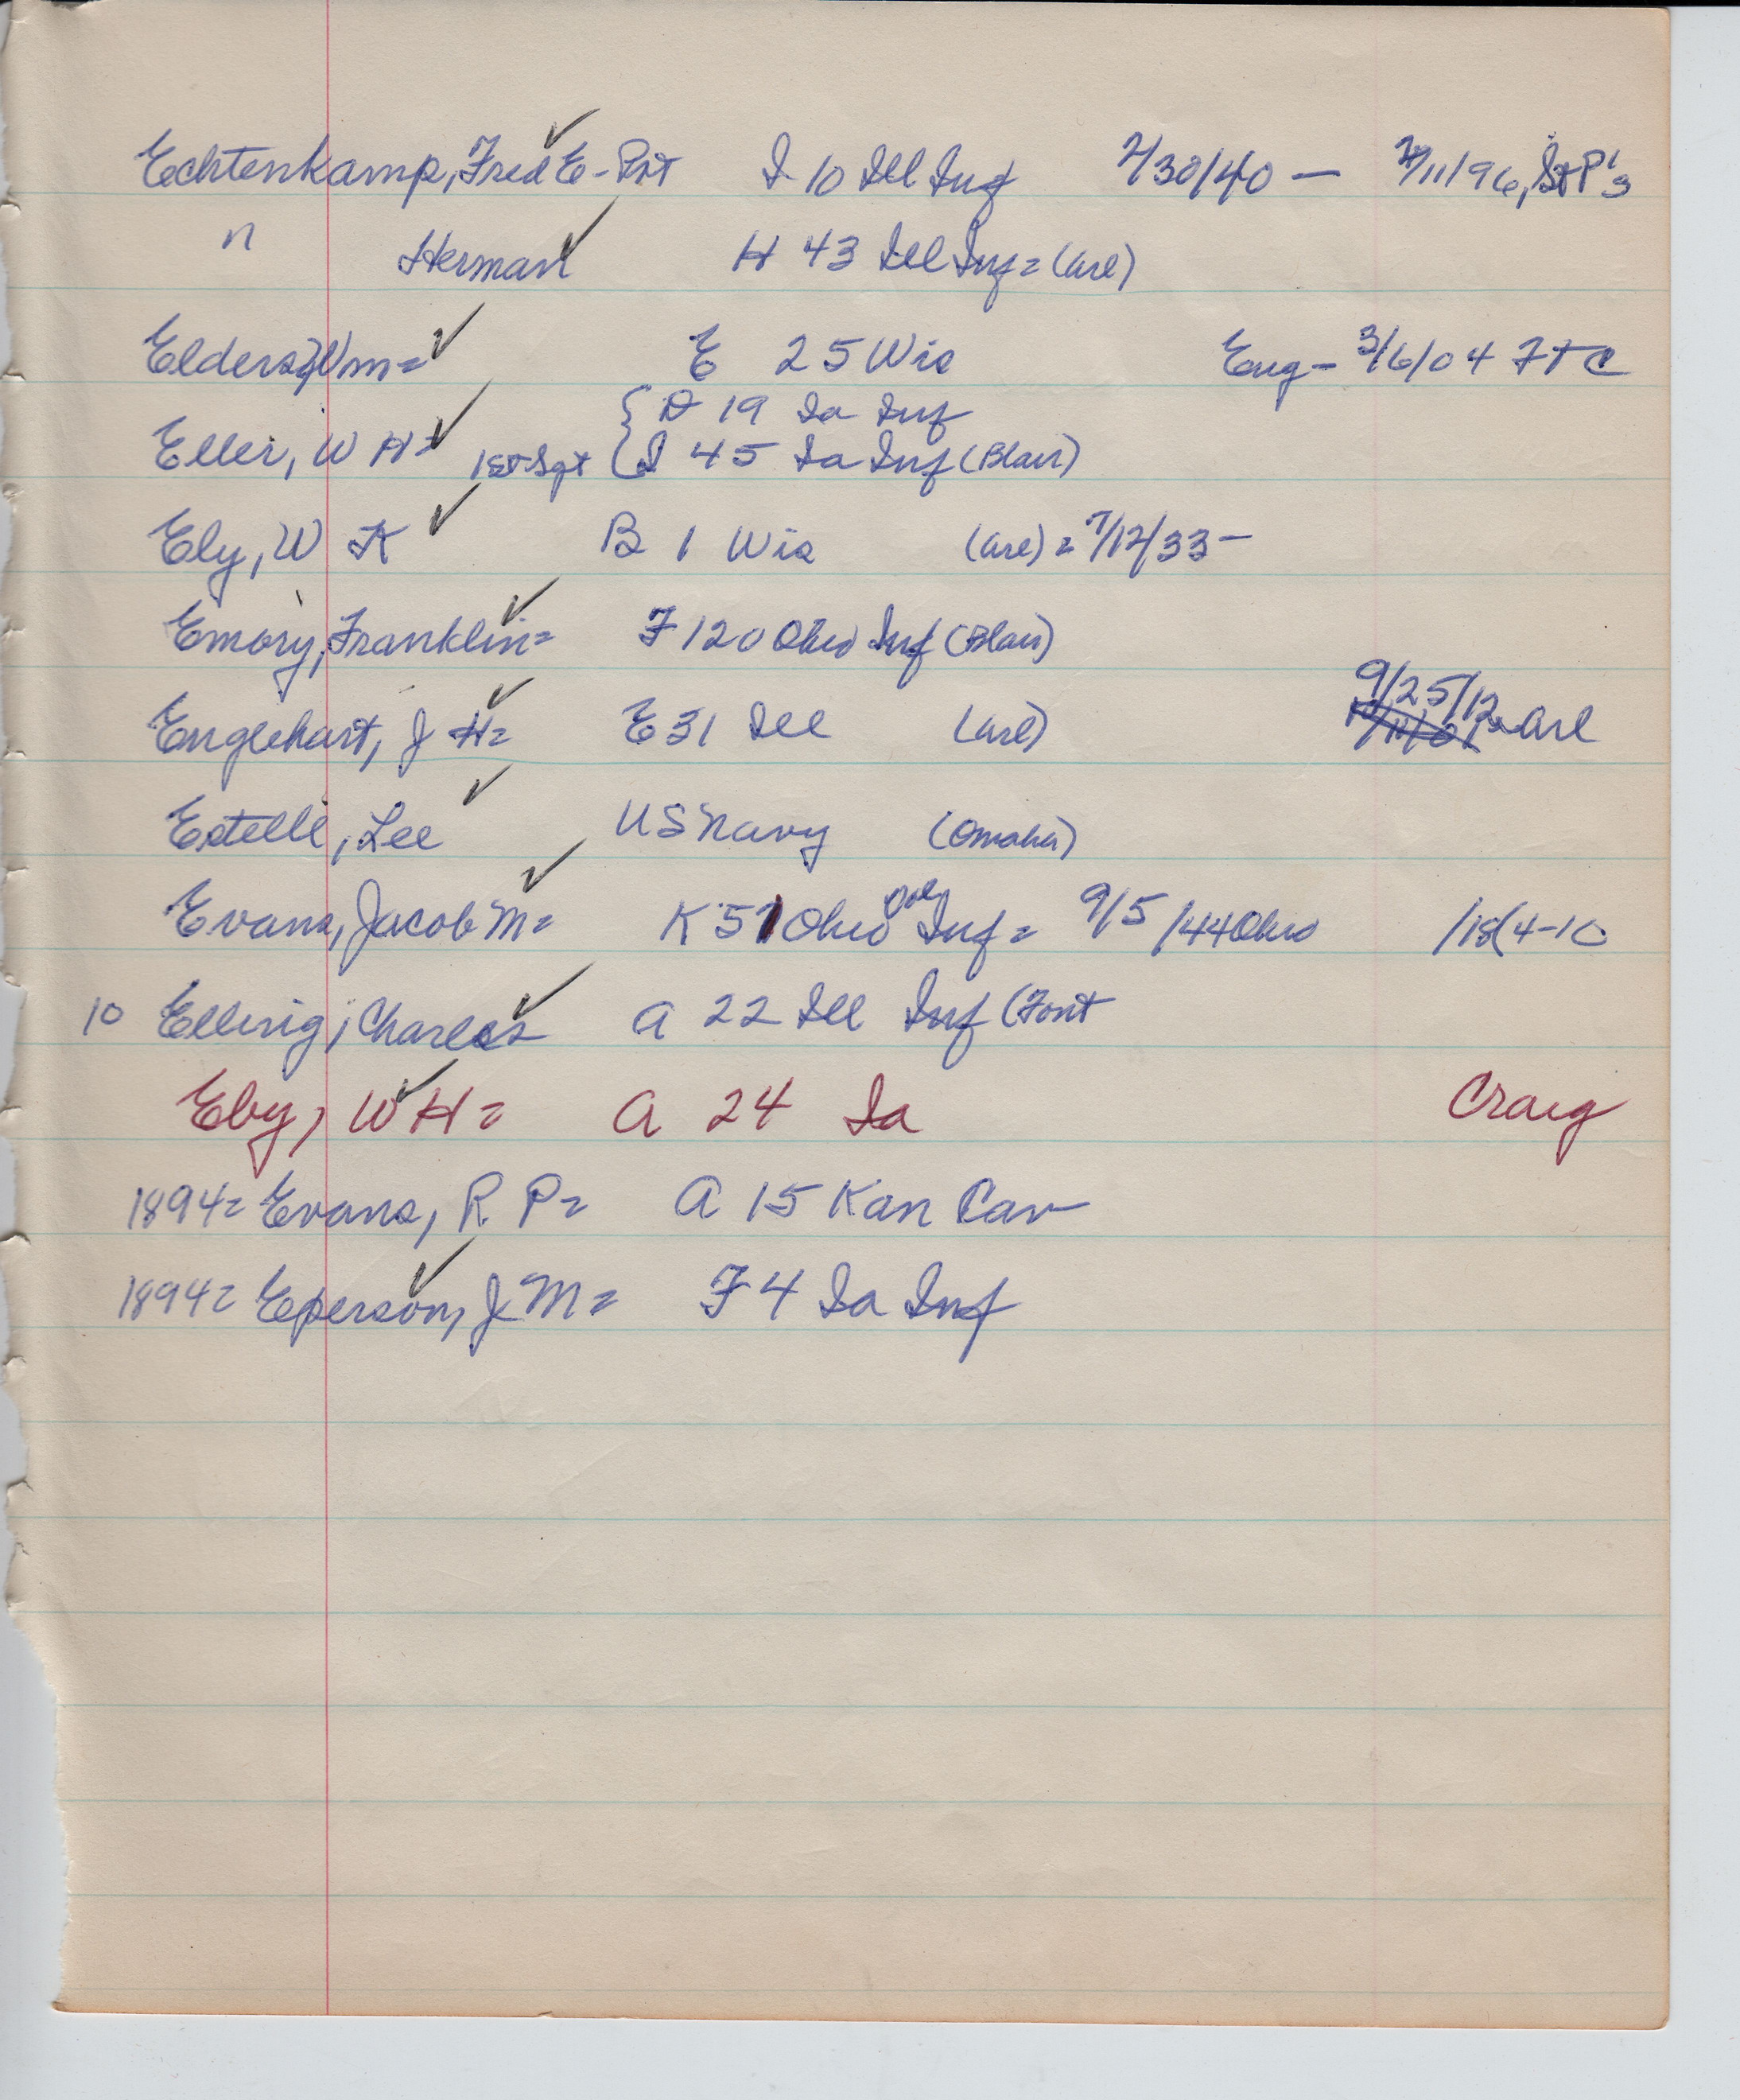 Echtenkamp, Fred E - Pvt I 10 Ill Inf 7/30/40 — 2/11/96, St P's
" Herman H 43 Ill Inf = (Arl)
Elders, Wm = E 25 Wis Eng - 3/6/04 Ft C
{ D 19 Ia Inf
Eller, W H = 1st Sgt { I 45 Ia Inf (Blair)
Ely, W K B 1 Wis (Arl) = 7/12/33 -
Emory, Franklin = F 120 Ohio Inf (Blair)
9/25/12
Englehart, J H = E 31 Ill (Arl) Arl
Estelle, Lee US Navy (Omaha)
Evans, Jacob M = K 51 Ohio Vol Inf = 9/5/44 Ohio
10 Ellirig, Charles A 22 Ill Inf (Font
Eby, W H = A 24 Ia Craig
1894 = Evans, R P = A 15 Kan Cav
1894 = Eperson, J M = F 4 Ia Inf